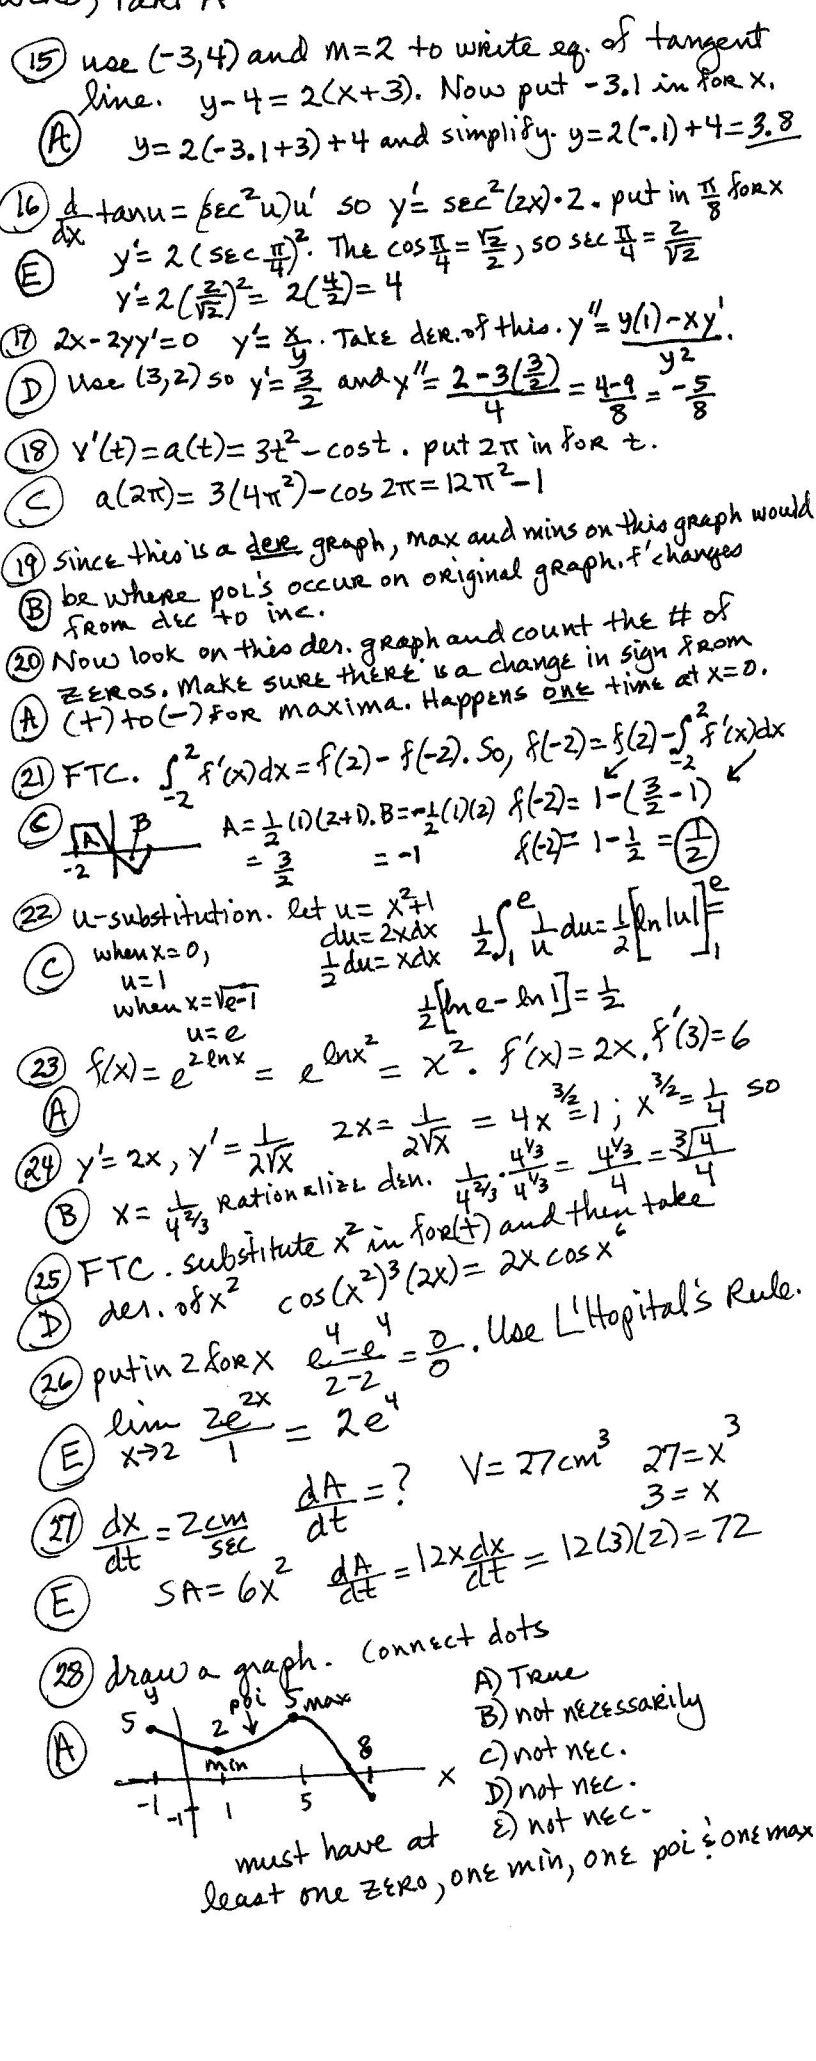 15 use (-3,4) and m=2 to write eq. of tangent
line. y-4=2(x+3). Now put -3.1 in for x.
A y=2(-3.1+3)+4 and simplify. y=2(-.1)+4=3.8
16 d/dx tanu=(sec²u)u' so y'=sec²(2x)·2. put in π/8 for x
E y'=2(sec π/4)². The cos π/4=√2/2, so sec π/4=2/√2
y'=2(2/√2)²=2(4/2)=4
17 2x-2yy'=0 y'=x/y. Take der. of this. y''=y(1)-xy'/y².
D Use (3,2) so y'=3/2 and y''=2-3(3/2)/4=4-9/8=-5/8
18 v'(t)=a(t)=3t²-cost. put 2π in for t.
C a(2π)=3(4π²)-cos2π=12π²-1
19 Since this is a der graph, max and mins on this graph would
B be where poi's occur on original graph. f' changes
from dec to inc.
20 Now look on this der. graph and count the # of
zeros. Make sure there is a change in sign from
A (+) to (-) for maxima. Happens one time at x=0.
21 FTC. ∫₋₂² f'(x)dx=f(2)-f(-2). So, f(-2)=f(2)-∫₋₂² f'(x)dx
C A B -2 A=½(1)(2+1). B=-½(1)(2) f(-2)=1-(3/2-1)
=3/2 =-1 f(-2)=1-½=½
22 u-substitution. let u=x²+1
du=2xdx ½∫₁ᵉ 1/u du=½[ln|u|]₁ᵉ=
C when x=0, ½du=xdx
u=1
when x=√e-1 ½[lne-ln1]=½
u=e
23 f(x)=e^2lnx=e^lnx²=x². f'(x)=2x. f'(3)=6
A
24 y'=2x, y'=1/2√x 2x=1/2√x=4x^3/2=1; x^3/2=¼ so
B x=1/4^2/3 Rationalize den. 1/4^2/3·4^1/3/4^1/3=4^1/3/4=∛4/4
25 FTC. substitute x² in for(t) and then take
D der. of x² cos(x²)³(2x)=2xcosx⁶
26 put in 2 for x e⁴-e⁴/2-2=0/0. Use L'Hopital's Rule.
E lim x→2 2e^2x/1=2e⁴
27 dx/dt=2cm/sec dA/dt=? V=27cm³ 27=x³
3=x
E SA=6x² dA/dt=12x dx/dt=12(3)(2)=72
28 draw a graph. Connect dots
A) True
y poi 5 max
B) not necessarily
A 5 2 ↓ 8
C) not nec.
min x
D) not nec.
-1 -1 1 5
E) not nec.
must have at
least one zero, one min, one poi & one max